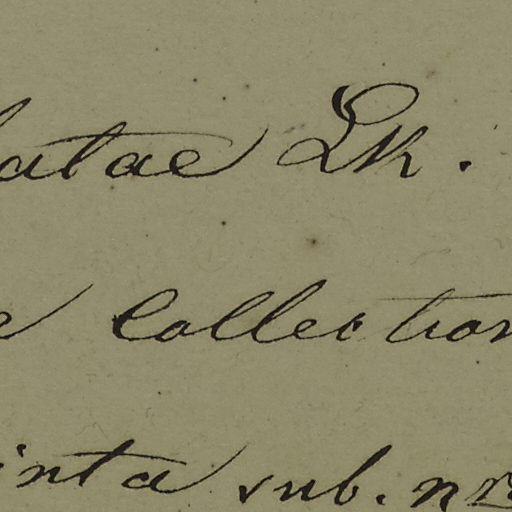 latae Lk.
e Collection
inta sub. nro